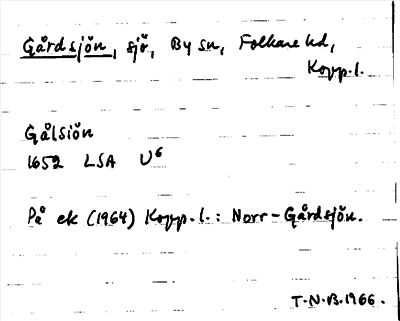 Gårdsjön, sjö, By sn, Folkare hd,
Kopp.l.
Gålsiön
1652 LSA U6
På ek (1964) Kopp.l.: Norr-Gårdsjön.
T.N.B.1966.